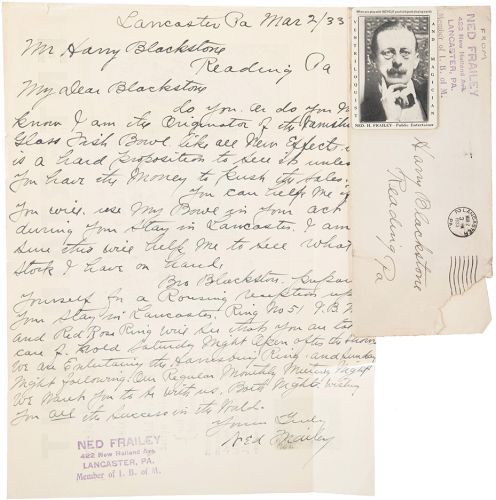 Lancaster Pa Mar 2/33
Mr. Harry Blackstone
Reading Pa
My Dear Blackstone
do you or do you
know I am the Originator of the Vanishing
Glass Fish Bowl. like all New Effects
is a hard proposition to sell it unless
you have the Money to push the sales.
You can help Me if
You will use My Bowl in your act
during your stay in Lancaster. I am
sure this will help Me to sell what
stock I have on hand.
Bro Blackstone.
Yourself for a Rousing reception
your stay in Lancaster. Ring No 51 I.B.M
and Red Rose Ring will see that you are
care of. Saturday Night after the show
We are Entertaining the Harrisburg Ring. and Sunday
Night following Our Regular Monthly Meeting Night
We Want you to be with us. Both Nights. wishing
You all the success in the World.
Yours Truly
Ned Frailey
NED FRAILEY
422 New Holland Ave.
LANCASTER, PA.
Member of I. B. of M.
VENTRILOQUIST
AND MAGICIAN
NED. H. FRAILEY - Public Entertainer
FROM
NED FRAILEY
422 New Holland Ave.
LANCASTER, PA.
Member of I. B. of M.
Harry Blackstone
Reading
Pa
LANCASTER